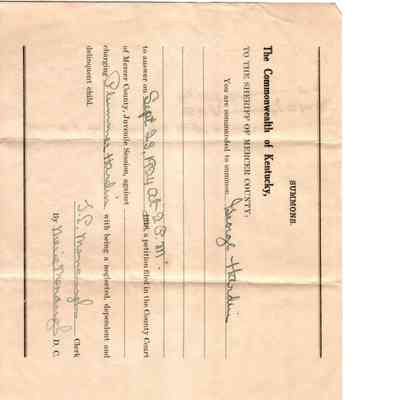 SUMMONS.
The Commonwealth of Kentucky,
TO THE SHERIFF OF MERCER COUNTY:
You are commanded to summon George Hardin
to answer on Sept 23, 1924 at 2 P.M. a petition filed in the County Court
of Mercer County, Juvenile Session, against
charging Plummer Hardin with being a neglected, dependent and
delinquent child.
Clerk
By D. C.